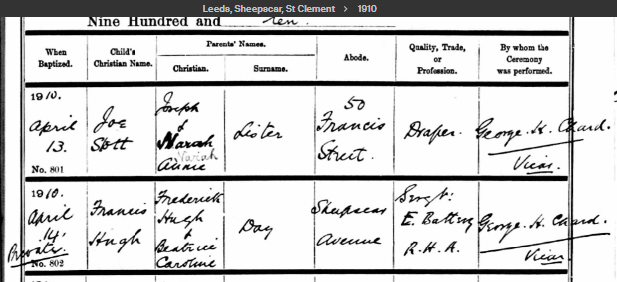 Leeds, Sheepscar, St Clement > 1910
Nine Hundred and ten.
When Baptized.
Child's Christian Name.
Parents' Names.
Christian.
Surname.
Abode.
Quality, Trade, or Profession.
By whom the Ceremony was performed.
1910.
April
13.
No. 801
Joe
Stott
Joseph
&
Nariah
Nariah
Annie
Lister
50
Francis
Street.
Draper.
George. H. Chard.
Vicar.
1910.
April
14.
Private
No. 802
Francis
Hugh
Frederick
Hugh
&
Beatrice
Caroline
Day
Sheepscar
Avenue
Sergt:
E. Battery
R. H. A.
George. H. Chard.
Vicar.